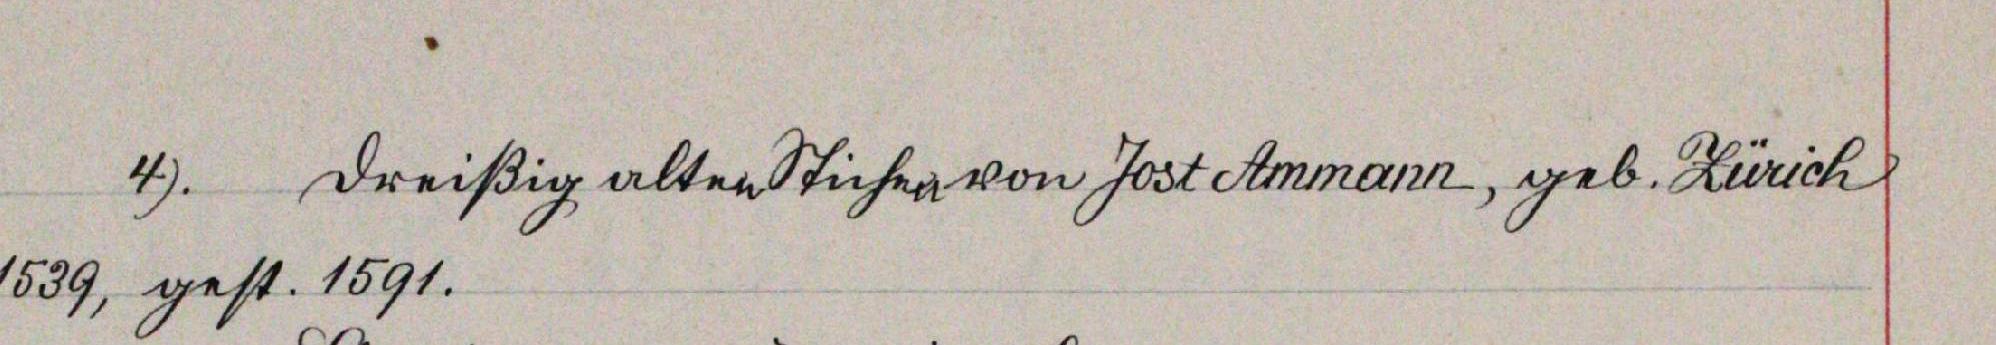 4). Dreißig alten Stichen von Jost Ammann, geb. Zürich
1539, gest. 1591.